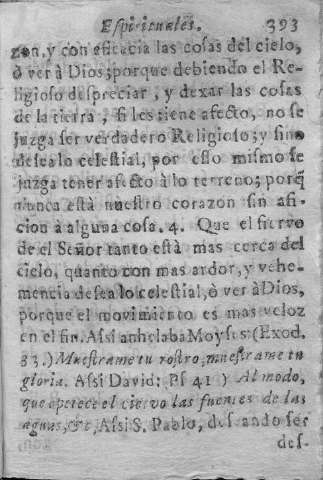 Espirituales. 393
zon, y con eficacia las cosas del cielo,
ò ver à Dios; porque debiendo el Re-
ligioso despreciar, y dexar las cosas
de la tierra, si les tiene afecto, no se
juzga ser verdadero Religioso; y si no
desea lo celestial, por esso mismo se
juzga tener afecto à lo terreno; porq̃
nunca està nuestro corazon sin afi-
cion à alguna cosa. 4. Que el siervo
de el Señor tanto està mas cerca del
cielo, quanto con mas ardor, y vehe-
mencia desea lo celestial, ò ver à Dios,
porque el movimiento es mas veloz
en el fin. Assi anhelaba Moyses: (Exod.
33.) Muestrame tu rostro, muestrame tu
gloria. Assi David: Ps 41 ) Al modo,
que apetece el ciervo las fuentes de las
aguas, &c, Assi S. Pablo, deseando ser
des-